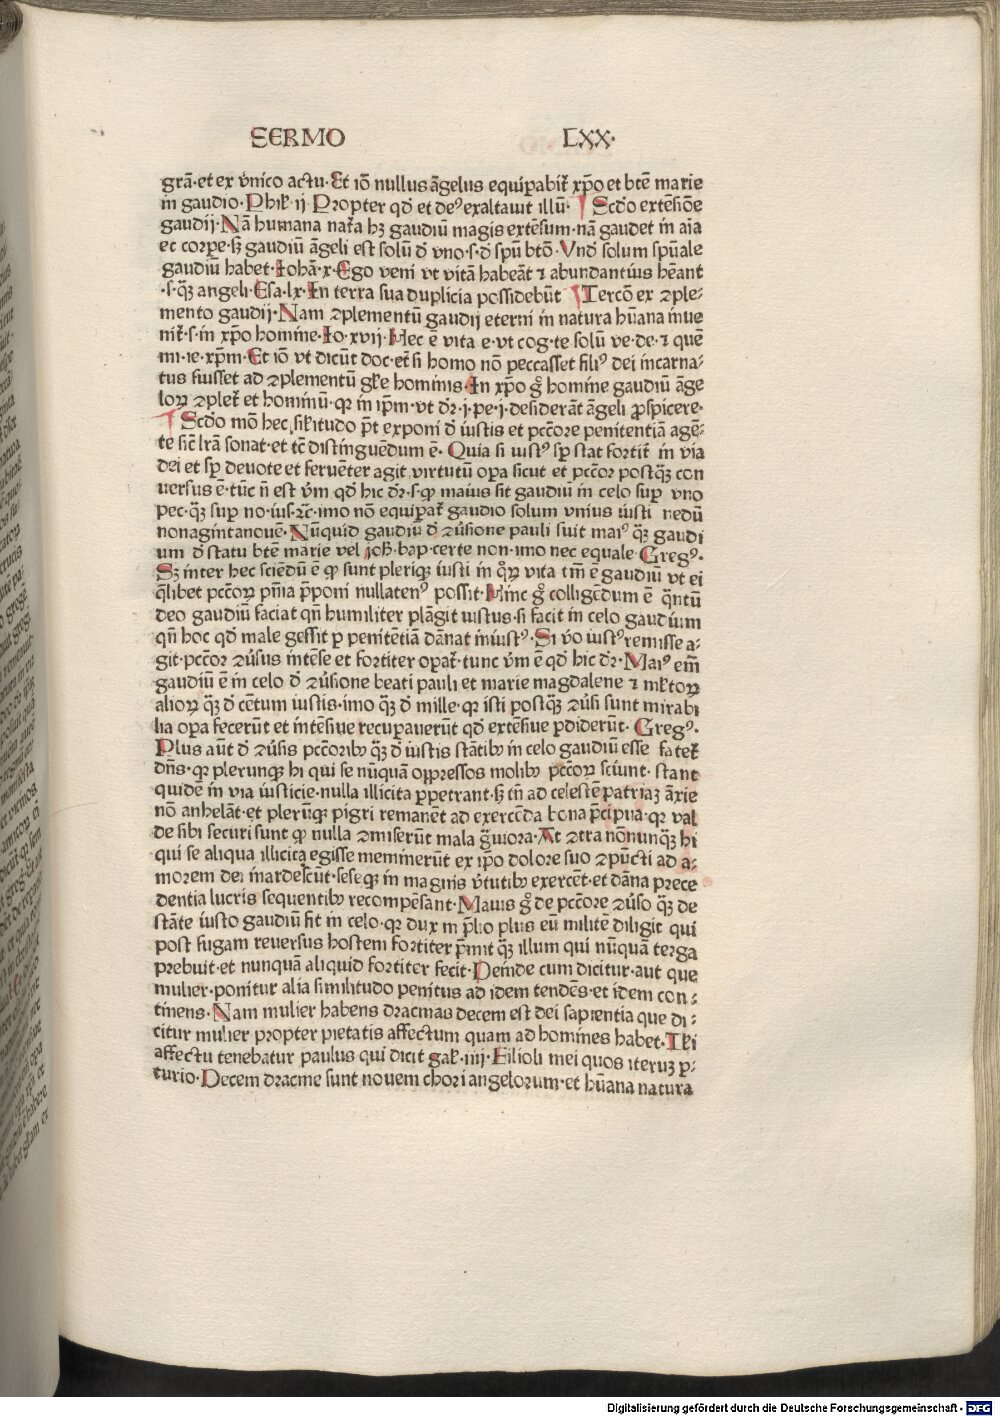 SERMO LXX·
grã·et ex vnico actu·Et iõ nullus ãgelus equiꝑabiť xp̃o et btẽ marie
in gaudio·Phiĺ·ij Propter qď et deꝰ exaltauit illũ· Scďo extẽsiõe
gaudij·Nã humana nať̃a hꝫ gaudiũ magis extẽsum·nã gaudet in aĩa
et corpe·sꝫ gaudiũ ãgeli est solũ ď vno·s·ď spũ btõ·Vnď solum spũale
gaudiũ habet·Iohã·x·Ego veni vt vitã habeãt ⁊ abundantius heãnt
·s·q̃ꝫ angeli·Esa·lx·In terra sua duplicia possidebũt Tercõ ex ꝯple-
mento gaudij·Nam ꝯplementũ gaudij eterni in natura hũana inue
niť·s·in xp̃o homine·Io·xvij·Hec ẽ vita e·vt cog·te solũ ve·de·⁊ quẽ
mi·ie·xp̃m·Et iõ vt dicũt doc·eť si homo nõ peccasset filiꝰ dei incarna-
tus fuisset ad ꝯplementũ gľe hominis·In xp̃o gͦ homine gaudiũ ãge
loꝝ ꝯpleť et hominũ·qꝛ in ip̃m·vt dꝛ·j·pe·j·desiderãt ãgeli ꝓspicere·
Scďo mõ hec siĺitudo p̃t exponi ď iustis et pctõre penitentiã agẽ-
te sic̃ lr̃a sonat·et tc̃ distinguẽdum ẽ· Quia si iustꝰ sꝑ stat fortiť in via
dei et sꝑ deuote et feruẽter agit virtutũ opa sicut et pctõr postq̃ꝫ con
uersus ẽ·tũc ñ est vm̃ qď hic dꝛ·s·ꝙ maius sit gaudiũ in celo suꝑ vno
pec·q̃ꝫ suꝑ no·ius·⁊c̃·imo nõ equiꝑať gaudio solum vnius iusti nedũ
nonagintanouẽ· Nũquid gaudiũ ď ꝯũsione pauli fuit maiꝰ q̃ꝫ gaudi
um ď statu btẽ marie vel ioħ·bap·certe non·imo nec equale·Gregꝰ·
Sꝫ inter hec sciẽdũ ẽ ꝙ sunt pleriqꝫ iusti in q̃ꝝ vita tm̃ ẽ gaudiũ vt ei
q̃libet pctõꝝ pñia p̃poni nullatenꝰ possit·Hinc gͦ colligẽdum ẽ q̃ntũ
deo gaudiũ faciat qñ humiliter plãgit iustus·si facit in celo gaudium
qñ hoc qď male gessit ꝑ penitẽtiã dãnat iniustꝰ·Si ṽo iustꝰ remisse a-
git·pctõr ꝯũsus intẽse et fortiter opať·tunc vm̃ ẽ qď hic dꝛ·Maiꝰ em̃
gaudiũ ẽ in celo ď ꝯũsione beati pauli et marie magdalene ⁊ mľtoꝝ
alioꝝ q̃ꝫ ď cẽtum iustis·imo q̃ꝫ ď mille·qꝛ isti postq̃ꝫ ꝯũsi sunt mirabi
lia opa fecerũt et intẽsiue recupauerũt qď extẽsiue ꝑdiderũt· Gregꝰ·
Plus aũt ď ꝯũsis pctõribꝰ q̃ꝫ ď iustis stãtibꝰ in celo gaudiũ esse fateť
dñs·qꝛ plerunqꝫ hi qui se nũquã oppressos molibꝰ pctõꝝ sciunt· stant
quidẽ in via iusticie·nulla illicita ꝑpetrant·sꝫ tñ ad celestẽ patriaꝫ ãxie
nõ anhelãt·et plerũqꝫ pigri remanẽt ad exercẽda bona p̃cipua·qꝛ val
de sibi securi sunt ꝙ nulla ꝯmiserũt mala g̃uiora·At ꝯtra nõnunqꝫ hi
qui se aliqua illicita egisse meminerũt ex ip̃o dolore suo ꝯpũcti ad a-
morem dei inardescũt·seseqꝫ in magnis ṽtutibꝰ exercẽt·et dãna prece
dentia lucris sequentibꝰ recompẽsant·Maius gͦ de pctõre ꝯũso q̃ꝫ de
stãte iusto gaudiũ fit in celo·qꝛ dux in p̃lio plus eũ militẽ diligit qui
post fugam reuersus hostem fortiter p̃mit q̃ꝫ illum qui nũquã terga
prebuit·et nunquã aliquid fortiter fecit·Deinde cum dicitur·aut que
mulier·ponitur alia similitudo penitus ad idem tendẽs·et idem con-
tinens·Nam mulier habens dracmas decem est dei sapientia que di-
citur mulier propter pietatis affectum quam ad homines habet·Iĺi
affectu tenebatur paulus qui dicit gaĺ·iiij·Filioli mei quos iteruꝫ ꝑ-
turio·Decem dracme sunt nouem chori angelorum·et hũana natura
Digitalisierung gefördert durch die Deutsche Forschungsgemeinschaft - DFG